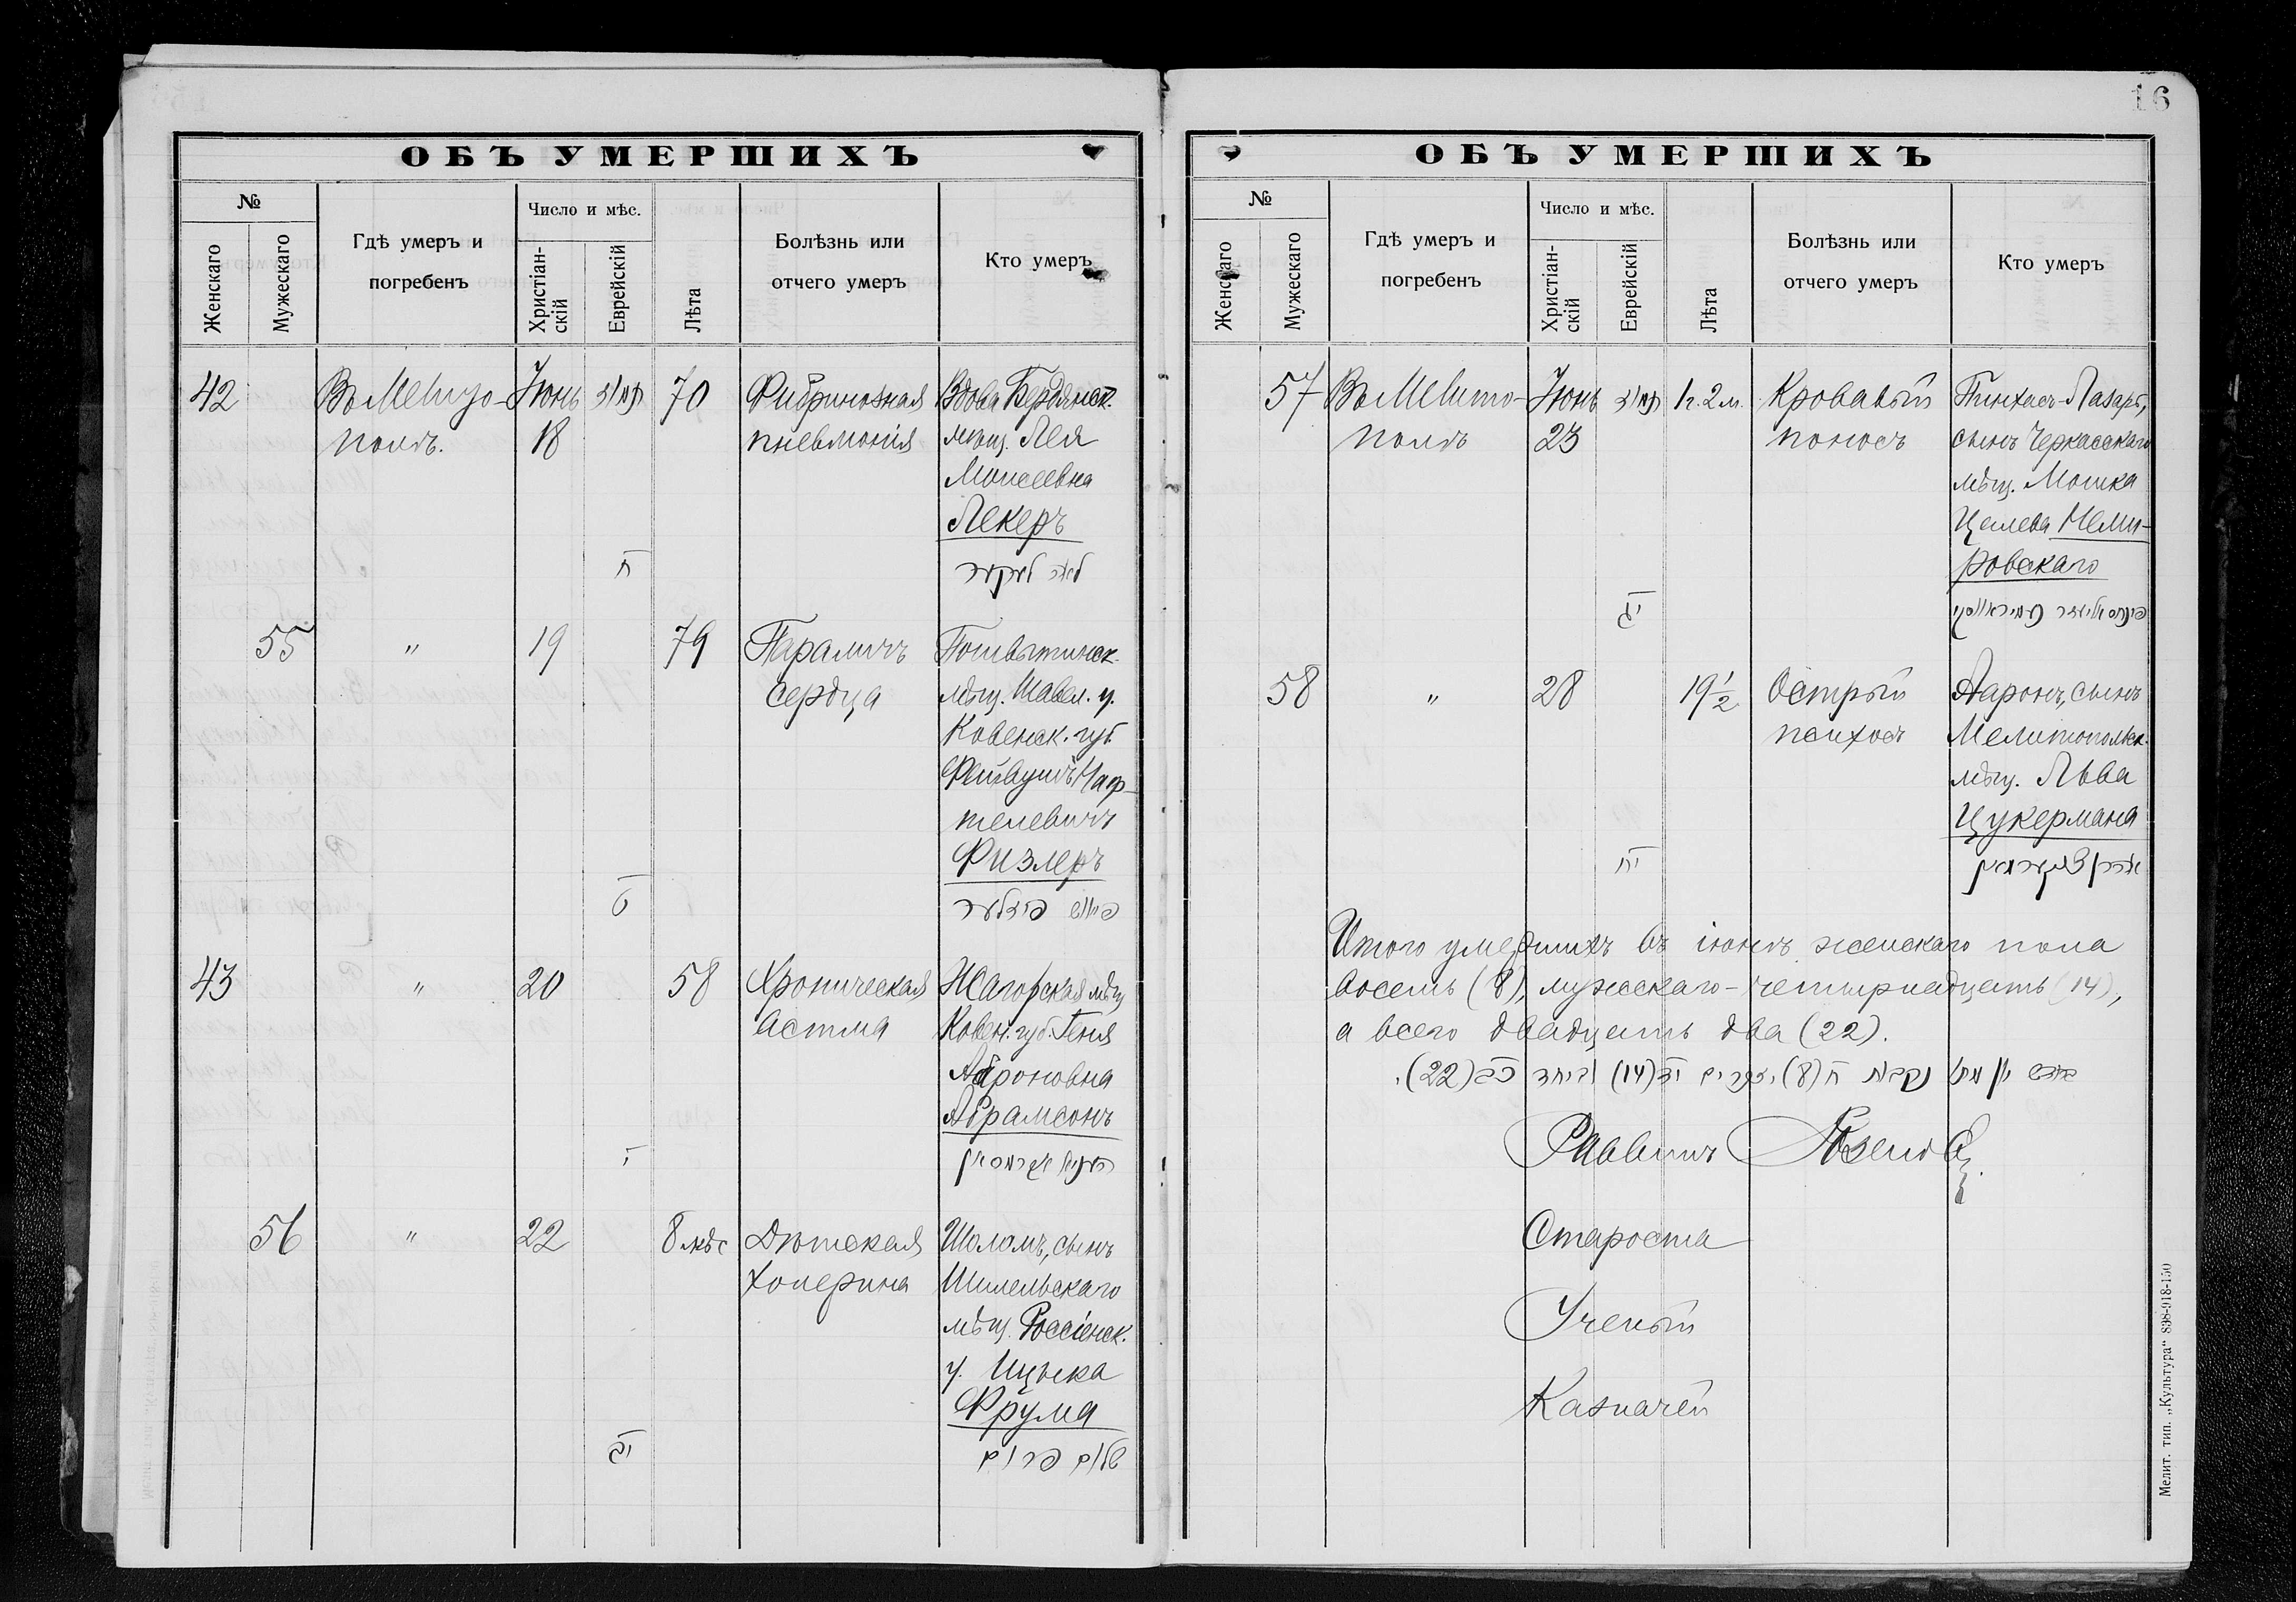 16
ОБЪ УМЕРШИХЪ
№
Женскаго
Мужескаго
Гдѣ умеръ и
погребенъ
Число и мѣс.
Христіан-
скій
Еврейскій
Лѣта
Болѣзнь или
отчего умеръ
Кто умеръ
42
Въ Мелито-
полѣ.
Іюнь
18
תמוז
ח
70
Фибринозная
пневмонія
Вдова Бердянск.
мѣщ. Лея
Моисеевна
Лекеръ
לאה לעקער
55
"
19
ט
79
Параличъ
сердца
мѣщ. Шавел. у.
Ковенск. губ.
Фейвушъ Наф-
телевичъ
Физлеръ
43
"
20
י
58
Хроническая
астма
Жагорская мѣщ
Ковен. губ. Геня
Ароновна
Абрамсонъ
56
"
22
יב
8 мѣс
Дѣтская
холерина
Шоломъ, сынъ
Шилельскаго
мѣщ. Россіенск.
у. Ицыка
Фрума
שלום פרום
ОБЪ УМЕРШИХЪ
№
Женскаго
Мужескаго
Гдѣ умеръ и
погребенъ
Число и мѣс.
Христіан-
скій
Еврейскій
Лѣта
Болѣзнь или
отчего умеръ
Кто умеръ
57
Въ Мелито-
полѣ
Іюнь
23
תמוז
יג
1 г. 2 м.
Кровавый
поносъ
Пинхасъ-Лазарь,
сынъ Черкасскаго
мѣщ. Мошка
Целева Неми-
ровскаго
58
"
28
יח
19 1/2
Острый
психозъ
Ааронъ, сынъ
Мелитопольск.
мѣщ. Льва
Цукермана
אהרן צוקערמאן
Итого умершихъ въ іюнѣ женскаго пола
восемь (8), мужескаго - четырнадцать (14),
а всего двадцать два (22).
נקבות ח (8) זכרים יד (14) וביחד כב (22).
Раввинъ
Староста
Ученый
Казначей
Мелит. тип. „Культура" 838-918-150